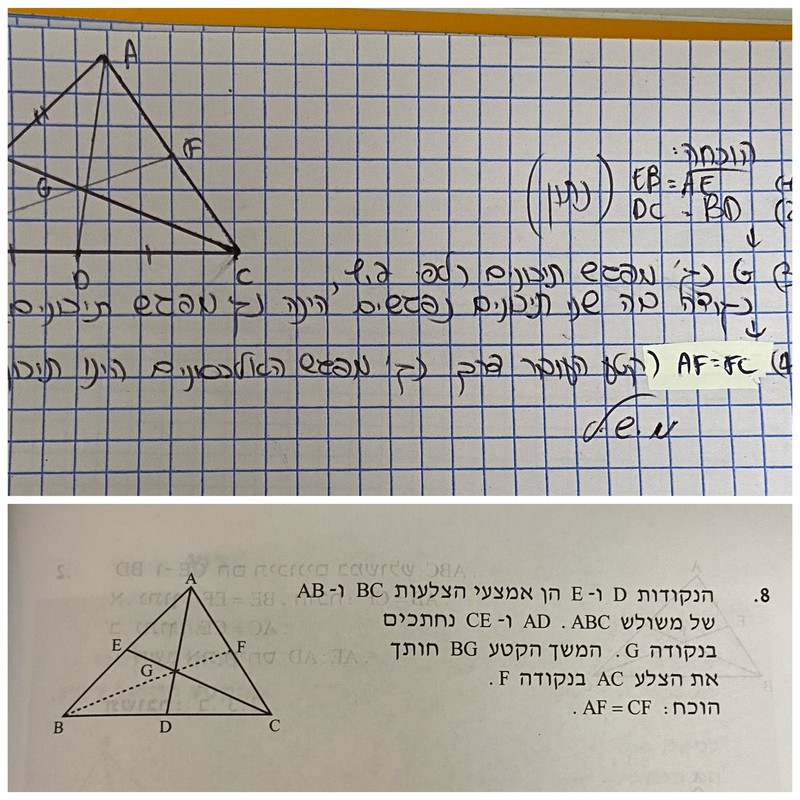 A
F
G
D
C
הוכחה:
EB = AE
(נתון)
DC = BD
G נק' מפגש תיכונים
נקודה בה שני תיכונים נפגשים, הינה נק' מפגש תיכונים
AF=FC (קטע העובר דרך נק' מפגש האלכסונים הינו תיכון
מ.ש.ל
8. הנקודות D ו- E הן אמצעי הצלעות BC ו- AB
של משולש ABC . AD ו- CE נחתכים
בנקודה G. המשך הקטע BG חותך
את הצלע AC בנקודה F .
הוכח: AF = CF .
A
E
F
G
B
D
C